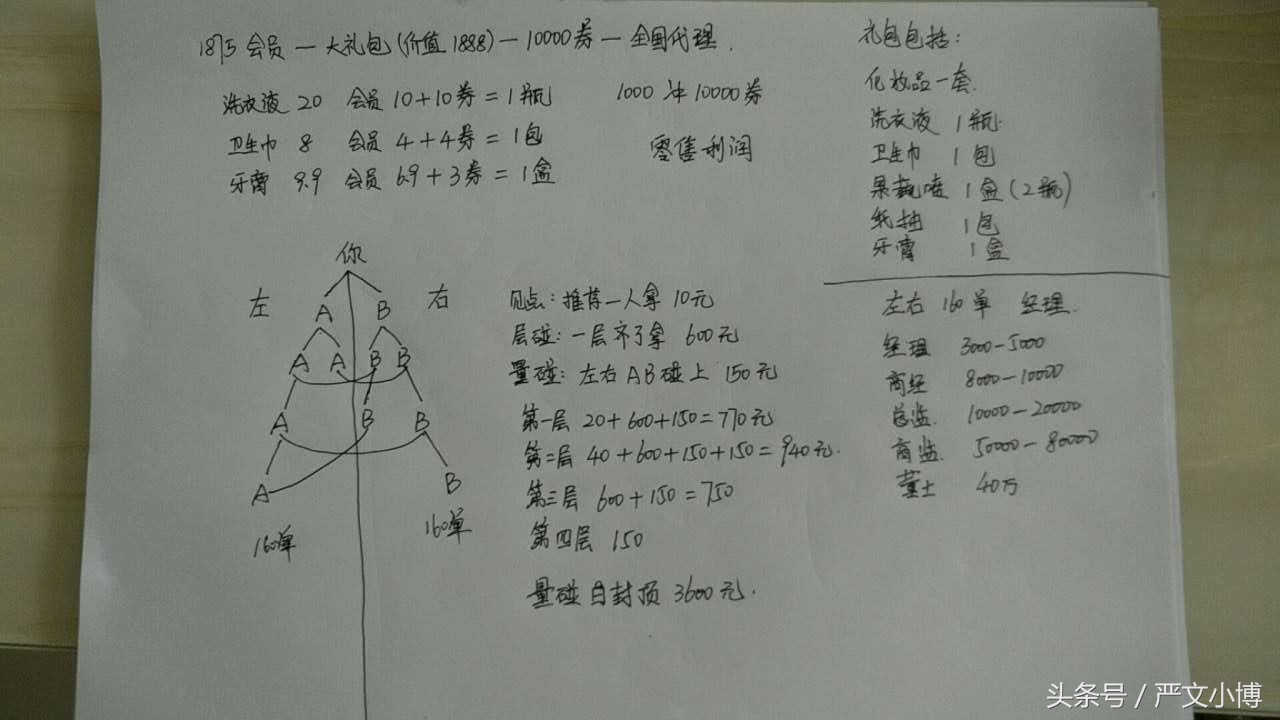 1875会员一大礼包(价值1888)一10000券一全国代理.
洗衣液 20 会员 10+10券=1瓶
卫生巾 8 会员 4+4券=1包
牙膏 9.9 会员 6.9+3券=1盒
1000冲10000券
零售利润
礼包包括:
化妆品一套.
洗衣液 1瓶
卫生巾 1包
果蔬 1盒(2瓶)
纸抽 1包
牙膏 1盒
你
左 A B 右
A A B B
A B B
A B
160单 160单
见点: 推荐一人拿10元
层碰: 一层齐了拿 600元
量碰: 左右AB碰上 150元
第一层 20+600+150=770元
第二层 40+600+150+150=940元.
第三层 600+150=750
第四层 150
量碰日封顶 3600元.
左右160单 经理.
经理 3000-5000
商经 8000-10000
总监 10000-20000
商监 50000-80000
董士 40万
头条号 / 严文小博